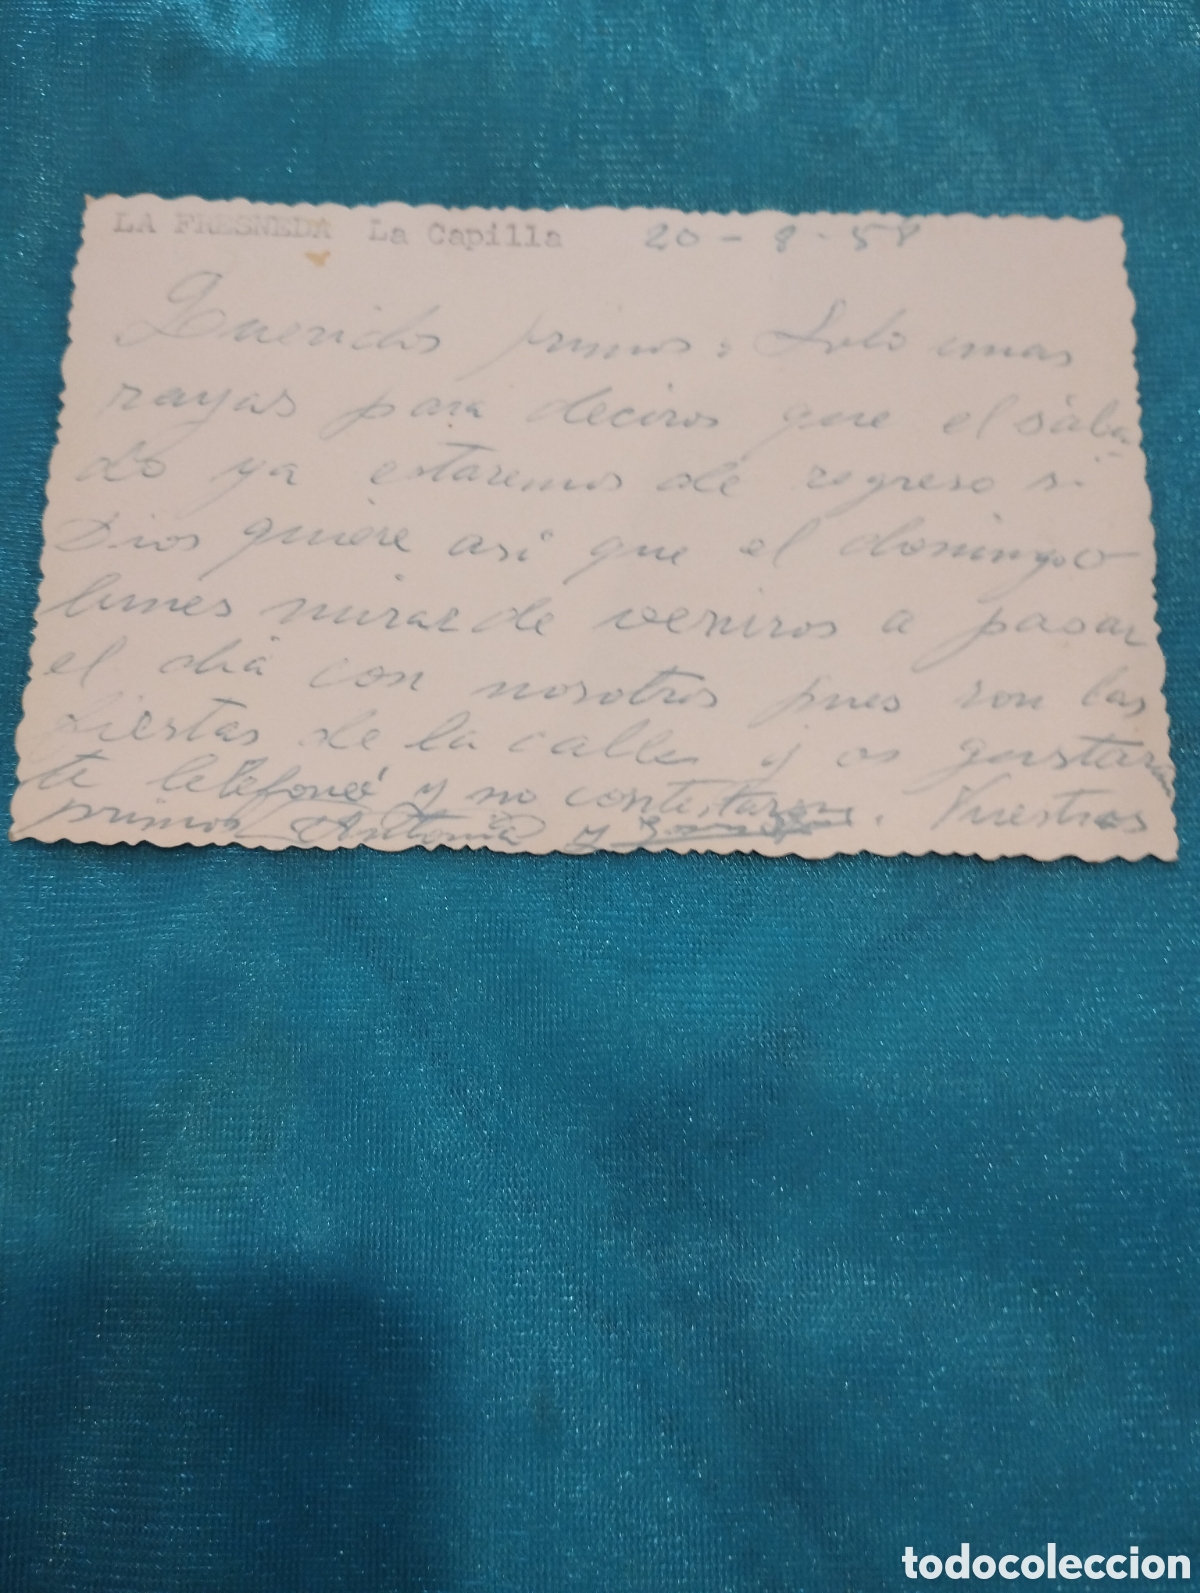 LA FRESNEDA La Capilla 20-8-58
Queridos primos: Solo unas
rayas para deciros que el saba-
do ya estaremos de regreso si
Dios quiere asi que el domingo o
lunes mirar de veniros a pasar
el dia con nosotros pues son las
fiestas de la calle y os gustara
te telefoneé y no contestaron. Vuestros
primos Antonia y
todocoleccion